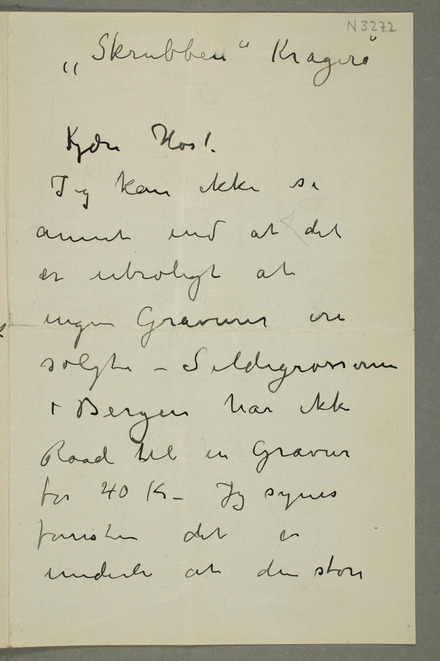 N 3272
„Skrubben" Kragerø
Kjære Høst.
Jeg kan ikke se
annet end at det
er utroligt at
ingen Gravurer ere
solgte – Sildegrossererne
i Bergen har ikke
Raad til en Gravur
for 40 Kr – Jeg synes
det er
underlig at den store